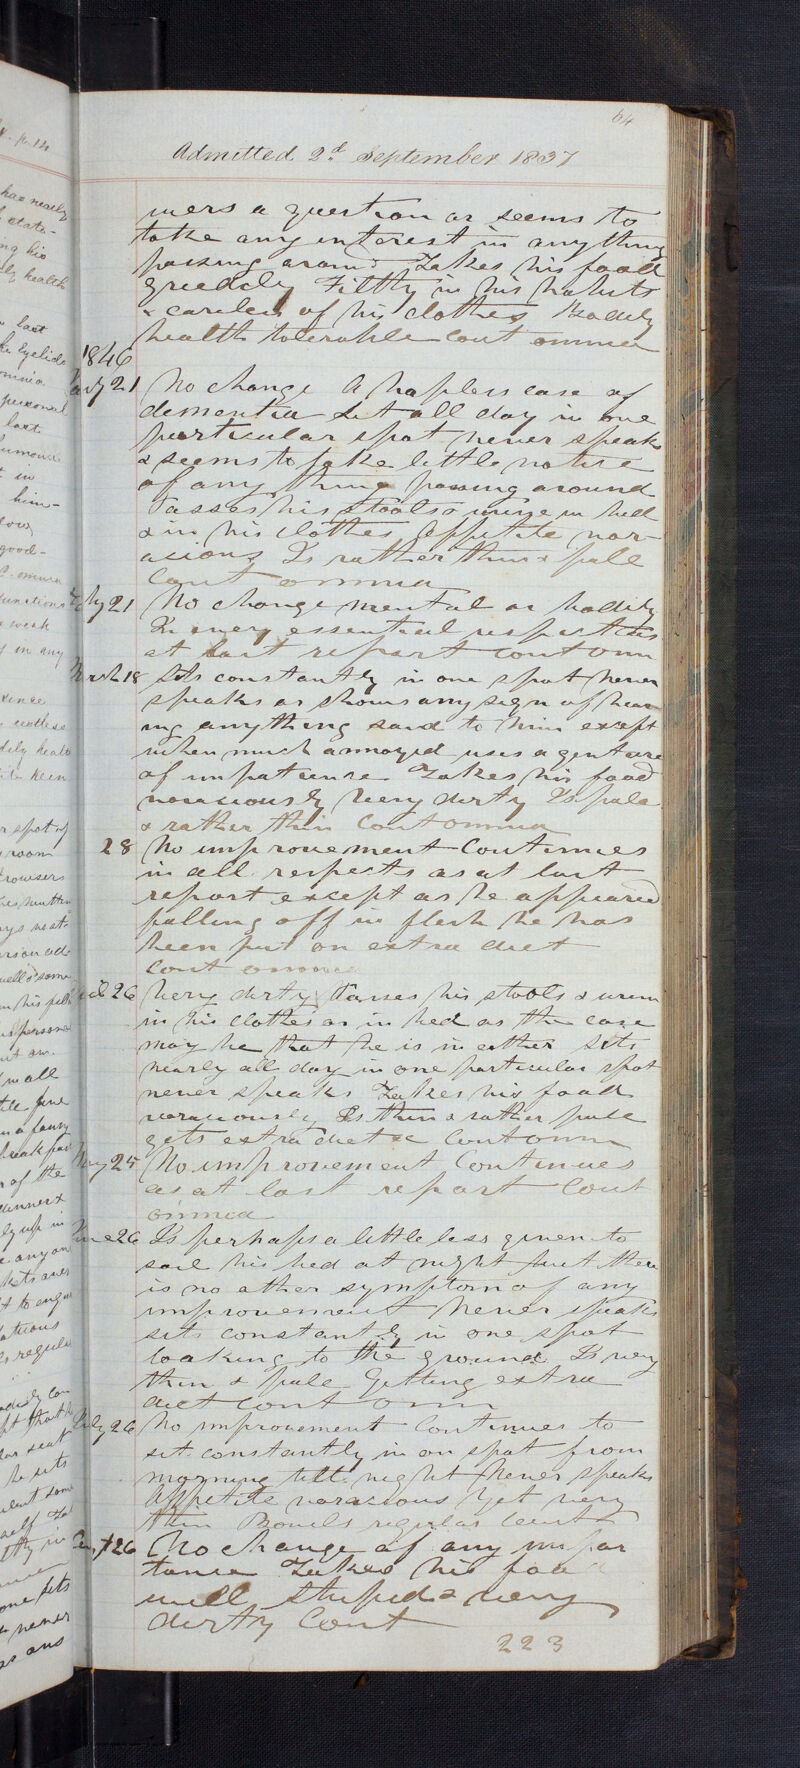 64
Admitted 2d September 1837
wers a question or seems to
take any interest in anything
passing around Takes his food
greedily Filthy in his habits
& careless of his clothes Bodily
health tolerable Cont omnia
1846
Jany 21 No change A hopless case of
dementia Sit all day in one
particular spot never speaks
& seems to take little notice
of any thing passing around
Passes his stools & urine in bed
& in his clothes Appetite vor-
acious Is rather thin & pale
Cont omnia
Feby 21 No change mental or bodily
In every essential respect as
at last report Cont omn
March 18 Sits constantly in one spot never
speaks or shows any sign of hear
ing anything said to him except
when much annoyed uses a gesture
of impatience Takes his food
voraciously Very dirty Is pale
& rather thin Cont omnia
28 No improvement Continues
in all respects as at last
report except as he appeared
falling off in flesh he has
been put on extra diet
Cont omnia
April 26 Very dirty Passes his stools & urine
in his clothes or in bed as the case
may be that he is in either Sits
nearly all day in one particular spot
never speaks Takes his food
voraciously Is thin & rather pale
gets extra diet & Cont omn
May 25 No improvement Continues
as at last report Cont
omnia
June 26 Is perhaps a little less given to
soil his bed at night but there
is no other symptom of any
improvement Never speaks
sits constantly in one spot
looking to the ground Is very
thin & pale Getting extra
diet Cont omn
July 26 No improvement Continues to
sit constantly in on spot from
morning till night Never speaks
Appetite voracious yet very
thin Bowels regular Cont
26 No change of any impor
tance Takes his food
well Stupid & very
dirty Cont
223